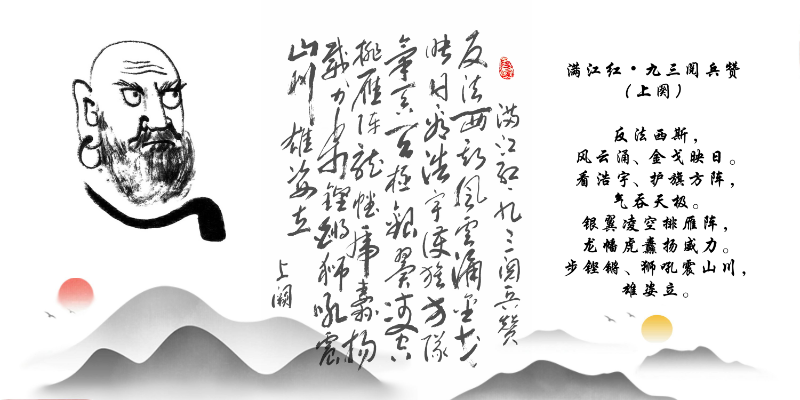 满江红·九三阅兵赞
反法西斯風雲涌金戈
映日看浩宇護旗方隊
氣吞天極銀翼凌空
排雁阵龍幡虎纛扬
威力步鏗鏘狮吼震
山川雄姿立
上阕
满江红·九三阅兵赞
（上阕）
反法西斯，
风云涌、金戈映日。
看浩宇、护旗方阵，
气吞天极。
银翼凌空排雁阵，
龙幡虎纛扬威力。
步铿锵、狮吼震山川，
雄姿立。